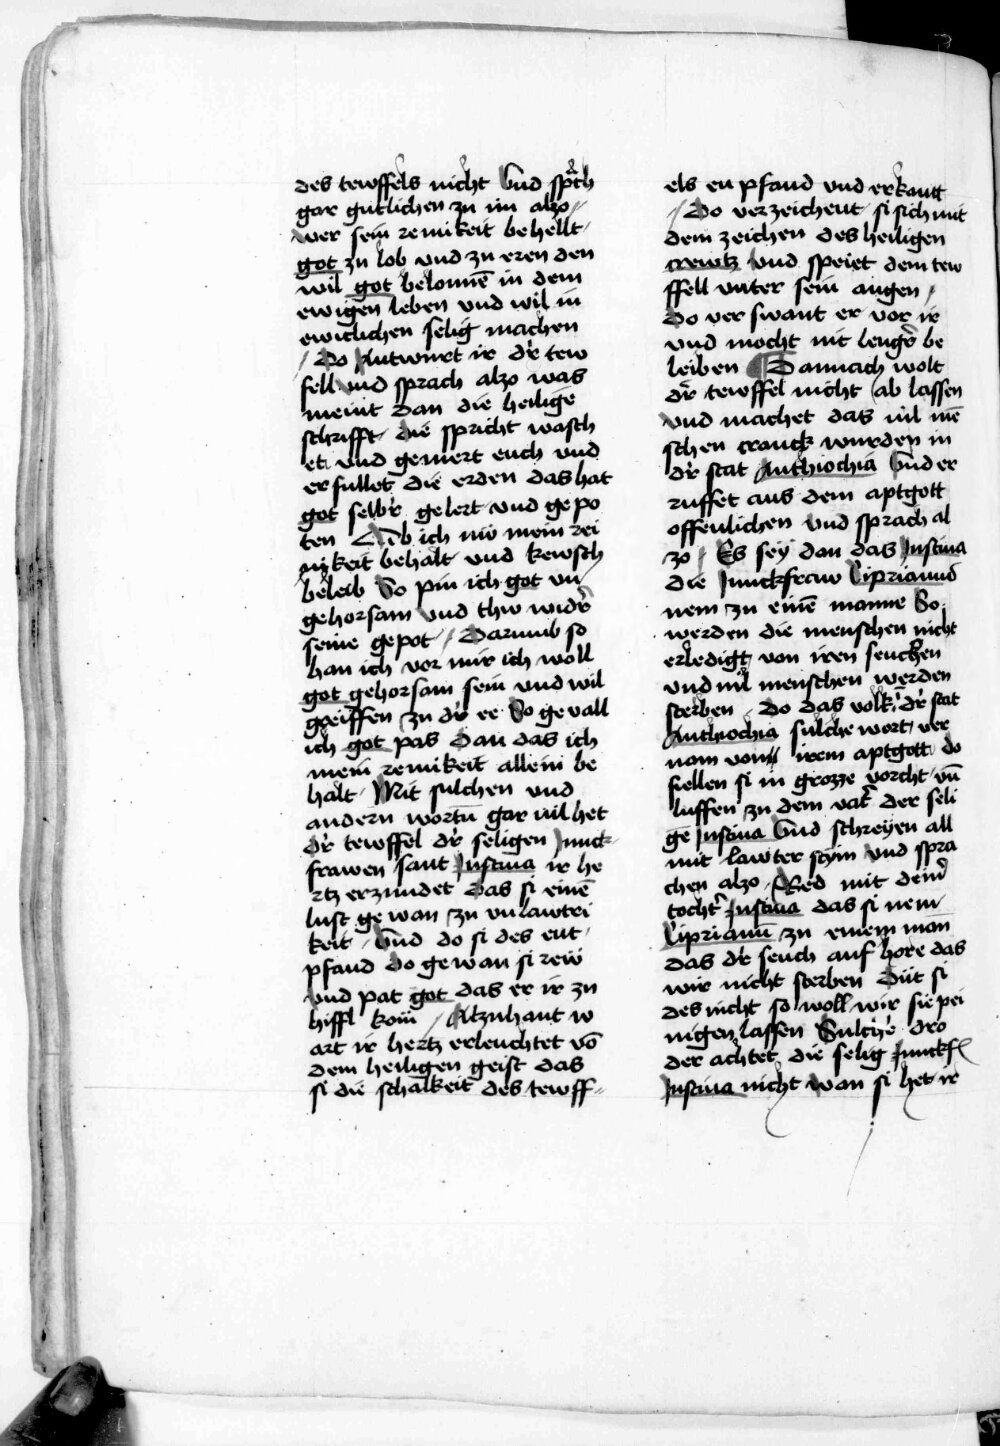 des tewffels nicht Vnd sp͛ch
gar gutlichen zu im alzo
wer sein reinikeit behellt
got zu lob vnd zu eren den
wil got belonnē in dem
ewigen leben vnd wil in
ewiclichen selig machen
Do Antwurt ir dˀ tew
fell vnd sprach alzo was
meint dan die heilige
schrifft die spricht wasch
et vnd gemert euch vnd
erfullet die erden das hat
got selbˀ gelert vnd gepo
ten Vnd ob ich nw mein rei
nikeit behalt vnd kewsch
beleib So pin ich got vn
gehorsam vnd thw widˀ
seine gepot Darumb so
han ich vor mir ich woll
got gehorsam sein vnd wil
greiffen zu dˀ ee So gevall
ich got pas dan das ich
mein reinikeit allein be
halt Mit sulchen vnd
andern wortn̄ gar uil het
dˀ tewffel dˀ seligen Junck
frawen sant Justina ir he
rtz erzundet das si einē
lust gewan zu vnlawtri
keit Vnd do si des ent
pfand do gewan si rew
vnd pat got das er ir zu
hiffl kom Altzuhant w
art ir hertz erleuchtet vō
dem heiligen geist das
si die schalkeit des tewff
els en pfand vnd erkantt
Do verzeichent si sich mit
dem zeichen des heiligen
crewtz vnd speiet dem tew
ffell vnter sein augen
Do verswant er vor ir
vnd mocht nit lengˀ be
leiben Dannach wolt
dˀ tewffel nicht ab lassen
vnd machet das uil mē
schen cranck wurden in
dˀ stat Anthiochia Vnd er
ruffet aus dem aptgott
offenlichen vnd sprach al
zo Es sey dan das Justina
die Junckfraw Ciprianum
nem zu einē manne So
werden die menschen nicht
erledigt von iren seuchen
vnd uil menschen werden
sterben Do das volk in dˀ stat
Anthiochia sulche wort ver
nam von irem aptgott do
fiellen si in grozze vorcht vn̄
luffen zu dem vatˀ der seli
ge Justina Vnd schreyen all
mit lawter stym vnd spra
chen alzo Red mit deinˀ
tochtˀ Justina das si nem
Ciprianū zu einem man
das dˀ seuch auf hore das
wir nicht sterben Dut si
des nicht so woll wir sie pei
nigen lassen Sulche dro
der achtet die selig Junckf
Justina nicht wan si het ir